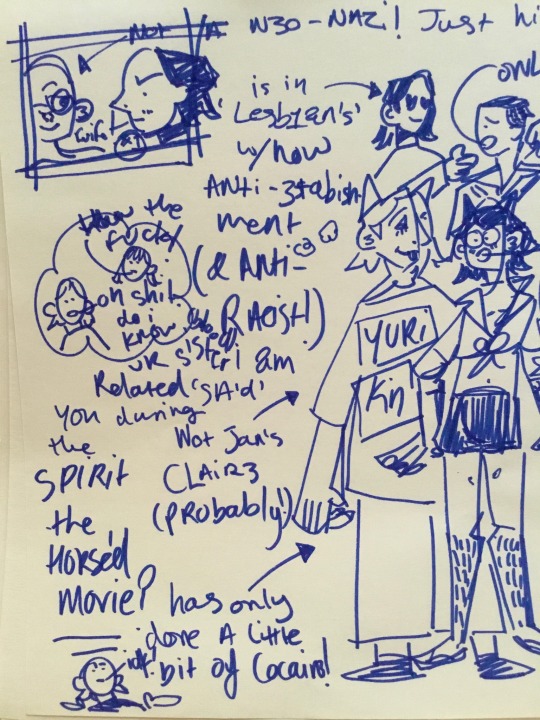 Not A N30-NAZi! Just hi
wife!
is in
Lesb1an's'
w/how
ANti-3stabish
ment
(& ANti-
RAcist!)
OWL
How the
fucke/
oh shit
do i
know
ur sister
i am
Related 'SIA'd'
you during
the
SPIRIT
the
HORSed
MOViE?
YURi
Kin
Not Jan's
CLAiR3
(PRobably)
has only
done A little
bit of Cocain3!